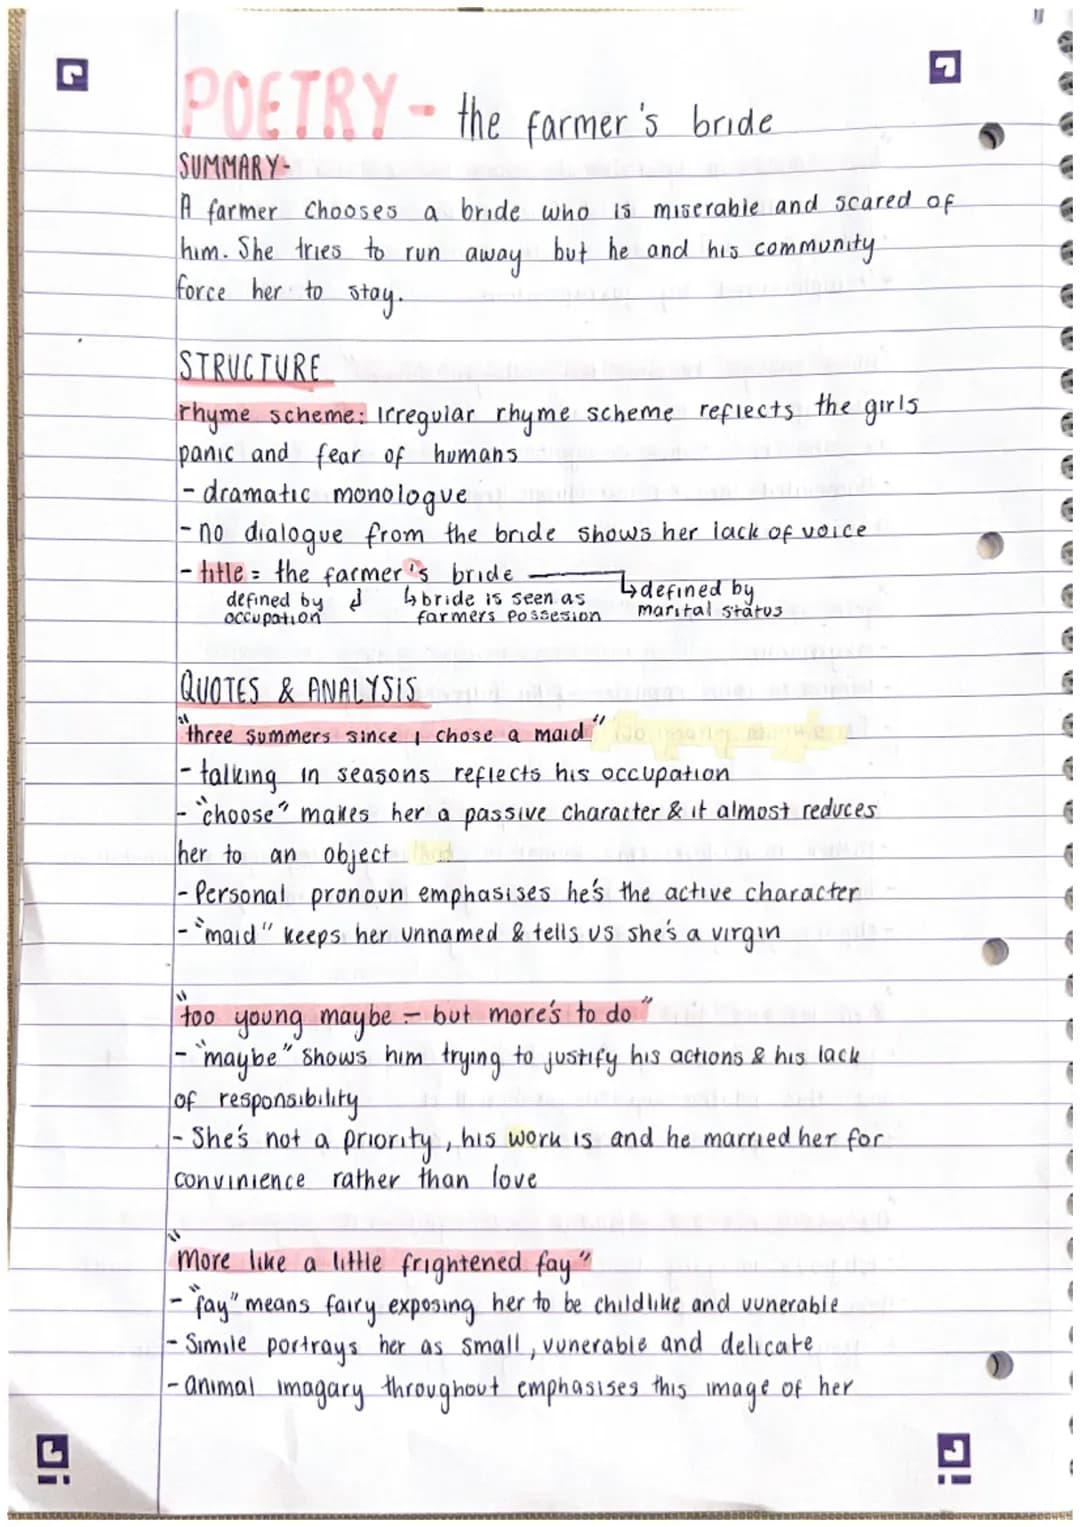 POETRY - the farmer's bride
SUMMARY-
A farmer chooses a bride who is miserable and scared of
him. She tries to run away but he and his community
force her to stay.
STRUCTURE
rhyme scheme: Irregular rhyme scheme reflects the girls
panic and fear of humans
- dramatic monologue
- no dialogue from the bride shows her lack of voice
- title = the farmer's bride
defined by occupation ↲ ↳ bride is seen as farmers possesion ↳ defined by marital status
QUOTES & ANALYSIS
"three summers since I chose a maid"
- talking in seasons reflects his occupation
- "choose" makes her a passive character & it almost reduces
her to an object
- Personal pronoun emphasises he's the active character
- "maid" keeps her unnamed & tells us she's a virgin
"too young maybe - but more's to do"
- "maybe" shows him trying to justify his actions & his lack
of responsibility
- She's not a priority, his work is and he married her for
convinience rather than love
"More like a little frightened fay"
- "fay" means fairy exposing her to be childlike and vunerable
- Simile portrays her as small, vunerable and delicate
- animal imagary throughout emphasises this image of her